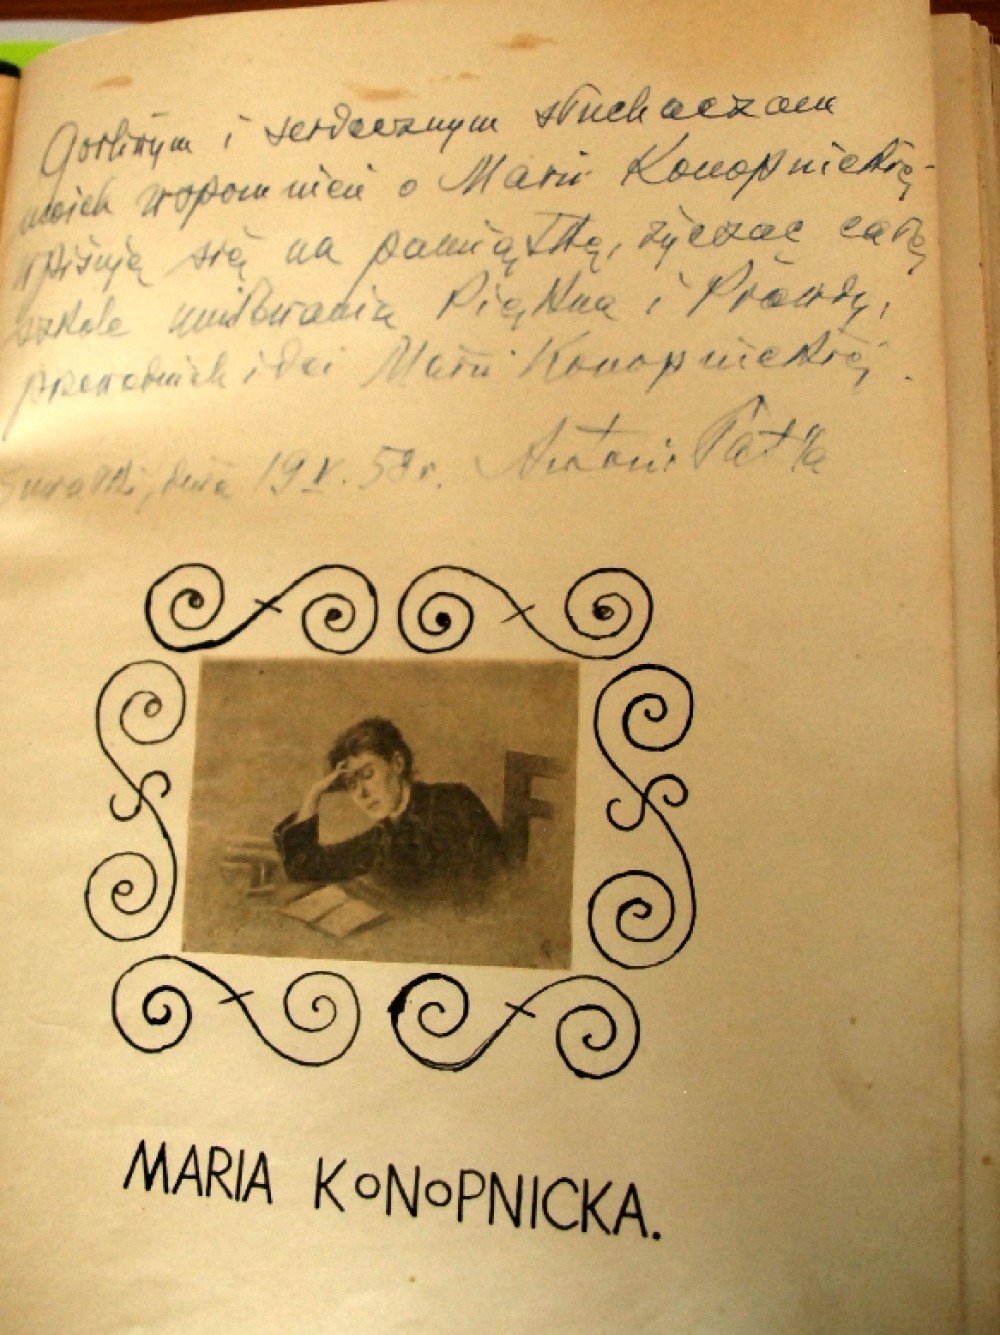 Gorliwym i serdecznym słuchaczom
moich wspomnień o Marii Konopnickiej
wpisuję się na pamiątkę, życząc całej
szkole umiłowania Piękna i Prawdy,
przewodnich idei Marii Konopnickiej.
Suwałki, dnia 19 V. 53 r. Antoni Patla
MARIA KONOPNICKA.